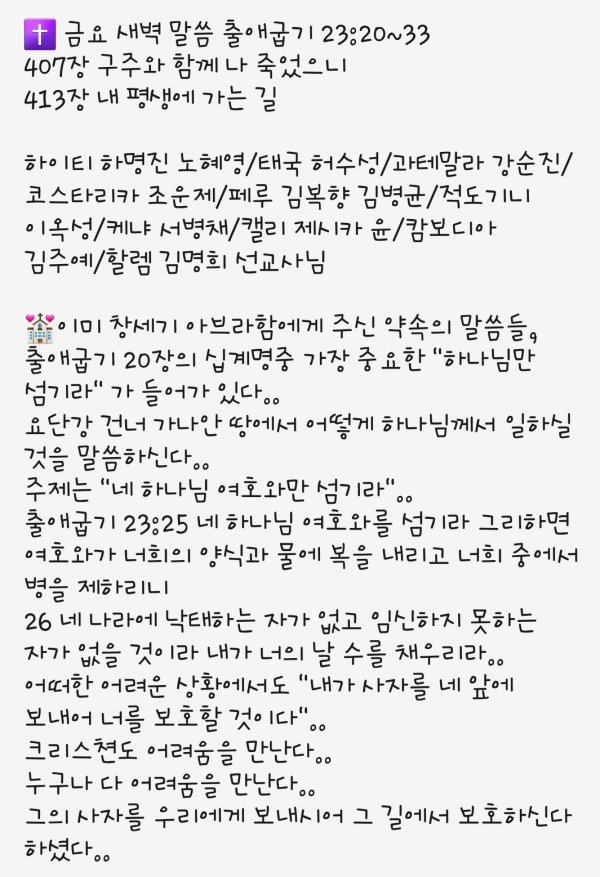 ✝️ 금요 새벽 말씀 출애굽기 23:20~33
407장 구주와 함께 나 죽었으니
413장 내 평생에 가는 길
하이티 하명진 노혜영/태국 허수성/과테말라 강순진/
코스타리카 조운제/페루 김복향 김병균/적도기니
이옥성/케냐 서병채/캘리 제시카 윤/캄보디아
김주예/할렘 김명희 선교사님
💒이미 창세기 아브라함에게 주신 약속의 말씀들,
출애굽기 20장의 십계명중 가장 중요한 "하나님만
섬기라" 가 들어가 있다。。
요단강 건너 가나안 땅에서 어떻게 하나님께서 일하실
것을 말씀하신다。。
주제는 "네 하나님 여호와만 섬기라"。。
출애굽기 23:25 네 하나님 여호와를 섬기라 그리하면
여호와가 너희의 양식과 물에 복을 내리고 너희 중에서
병을 제하리니
26 네 나라에 낙태하는 자가 없고 임신하지 못하는
자가 없을 것이라 내가 너의 날 수를 채우리라。。
어떠한 어려운 상황에서도 "내가 사자를 네 앞에
보내어 너를 보호할 것이다"。。
크리스쳔도 어려움을 만난다。。
누구나 다 어려움을 만난다。。
그의 사자를 우리에게 보내시어 그 길에서 보호하신다
하셨다。。